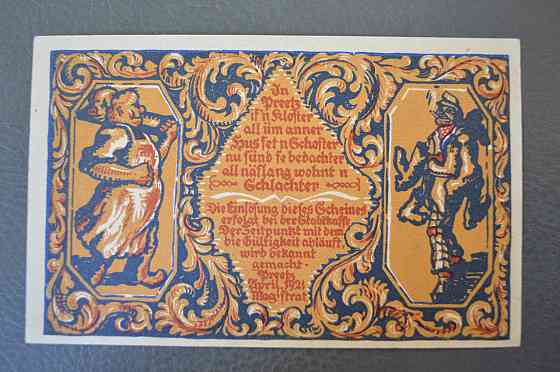 In
Preetz
is'n Kloster
all üm anner
Hus set'n Schoster
nu sünd se bedachter
all näslang wohnt n
Schlachter
Die Einlösung dieses Scheines
erfolgt bei der Stadtkasse
Der Zeitpunkt mit dem
die Gültigkeit abläuft
wird bekannt
gemacht.
Preetz
April 1921
Magistrat